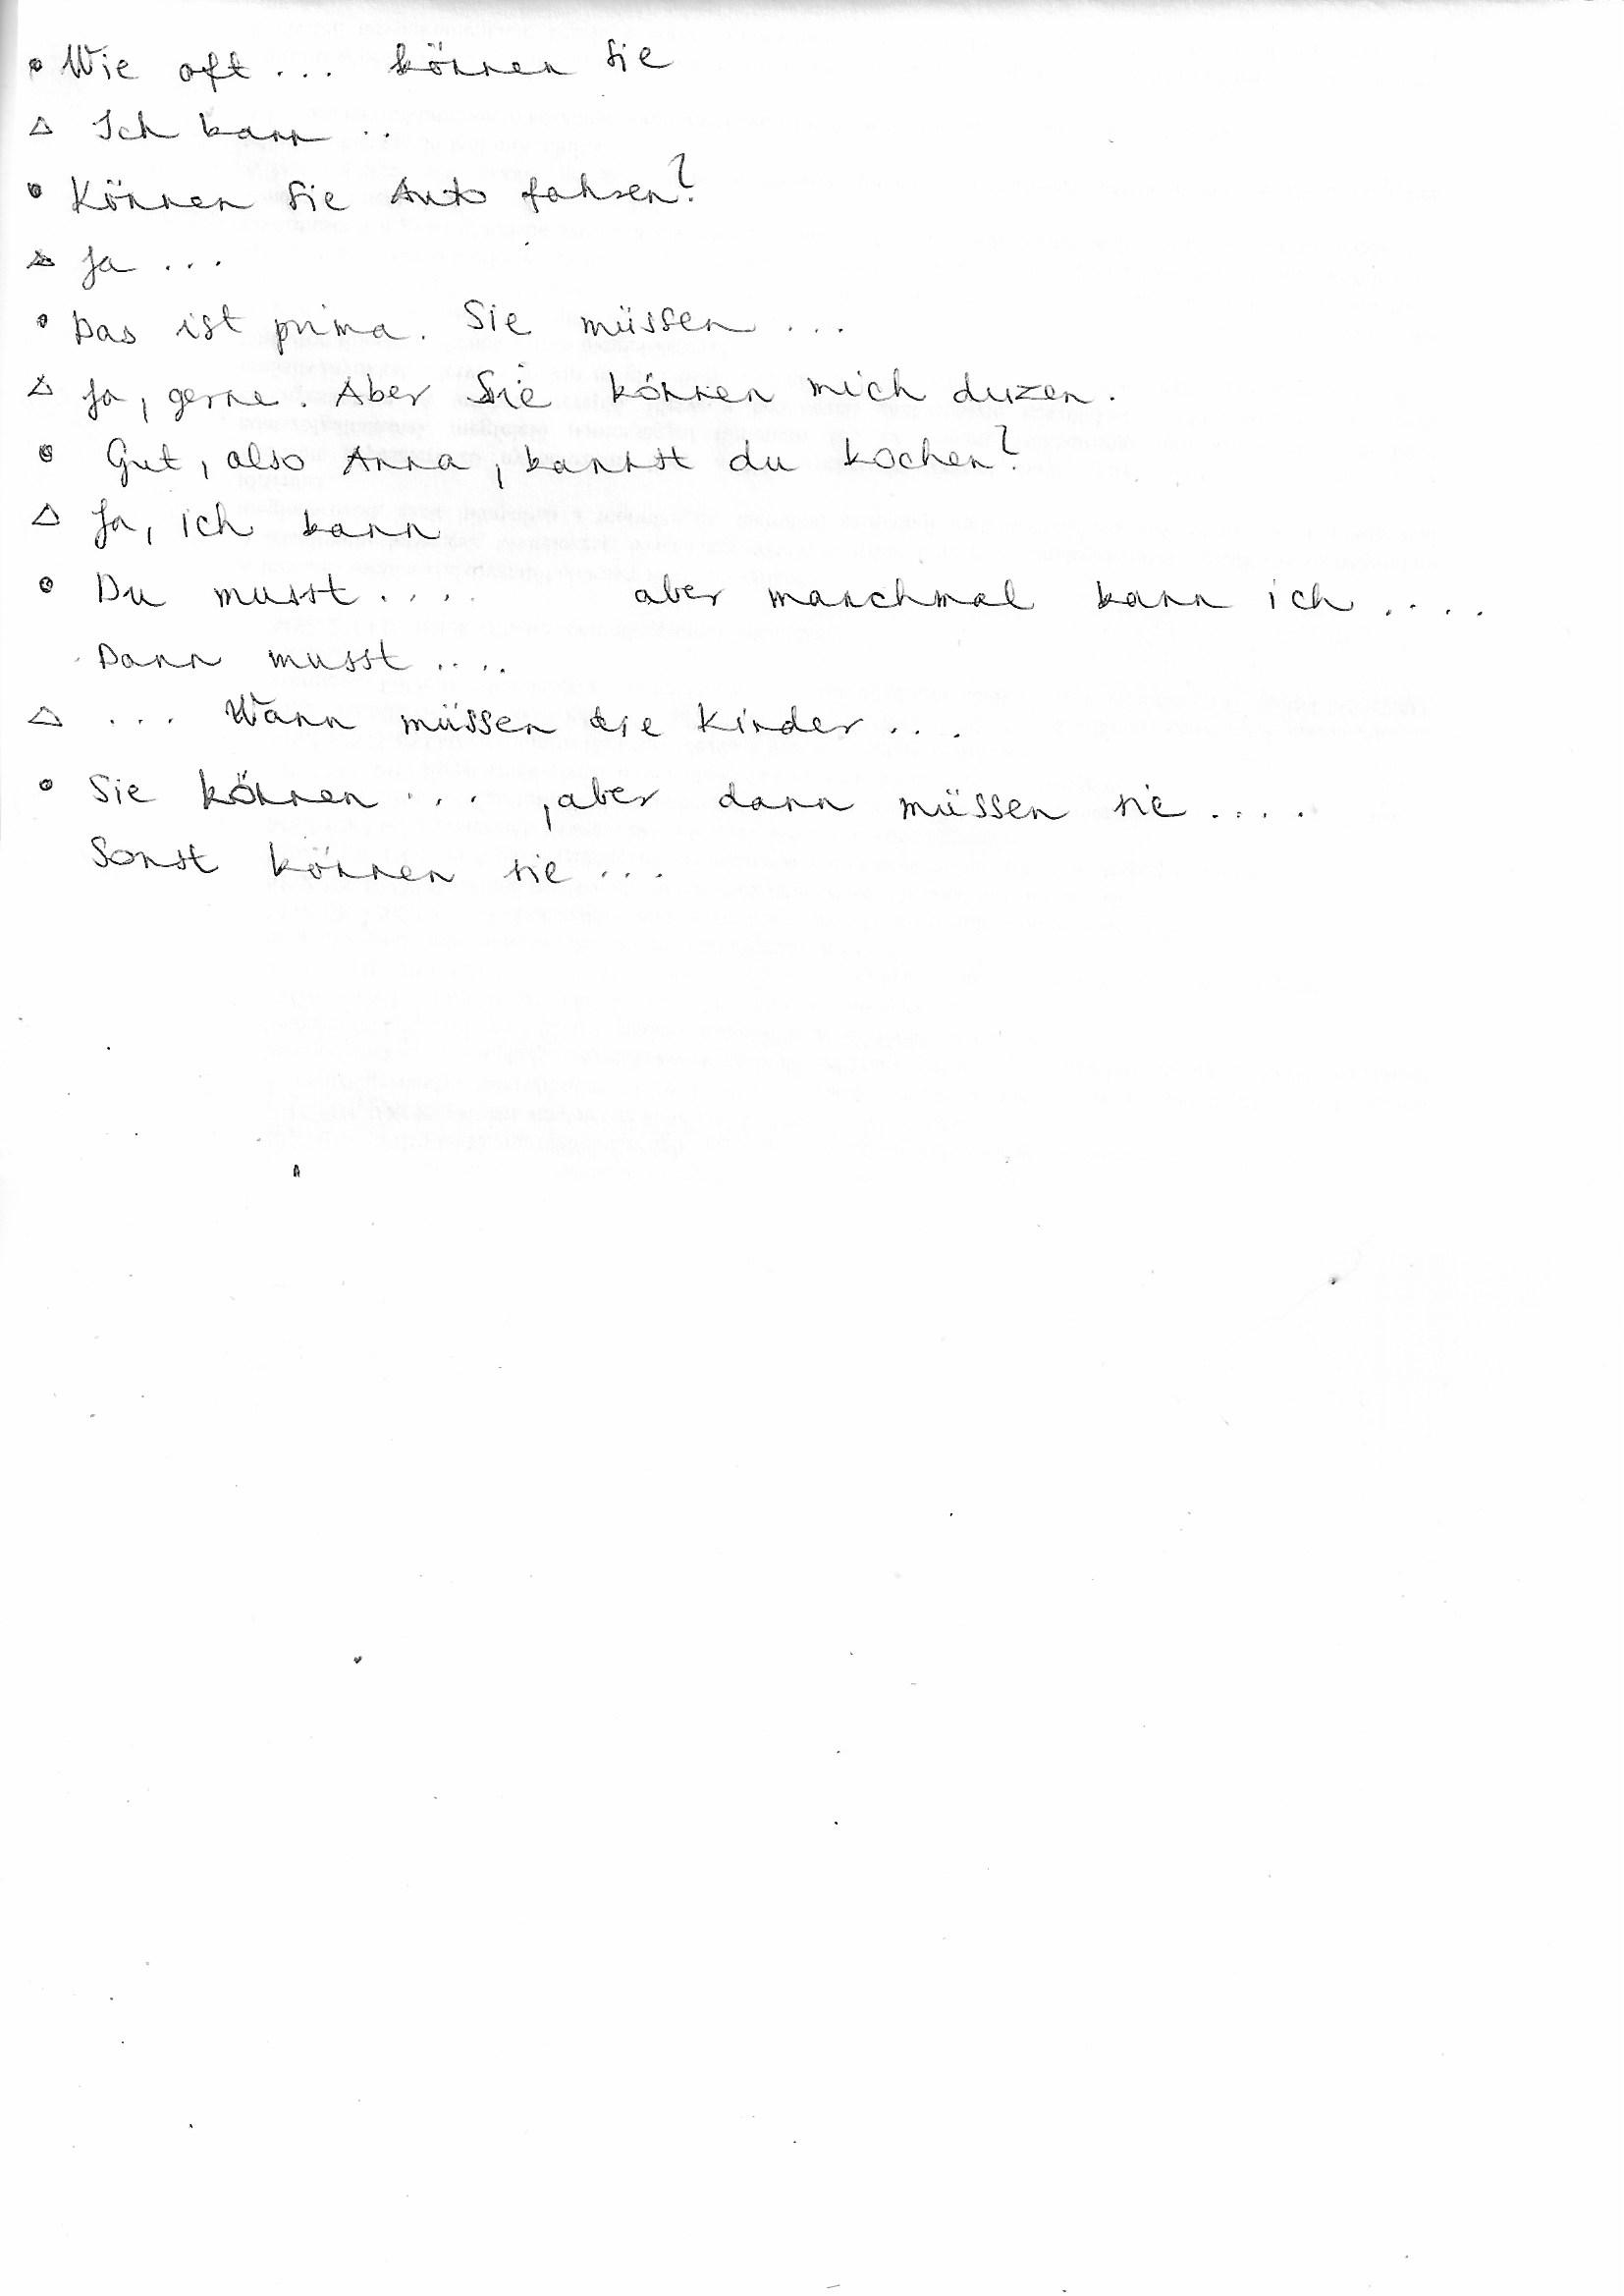 • Wie oft ... können Sie
△ Ich kann ..
• Können Sie Auto fahren?
△ Ja ...
• Das ist prima. Sie müssen ...
△ Ja, gerne. Aber Sie können mich duzen.
• Gut, also Anna, kannst du kochen?
△ Ja, ich kann
• Du musst .... aber manchmal kann ich ....
Dann musst ....
△ ... Wann müssen die Kinder ...
• Sie können ... , aber dann müssen sie ....
Sonst können sie ...